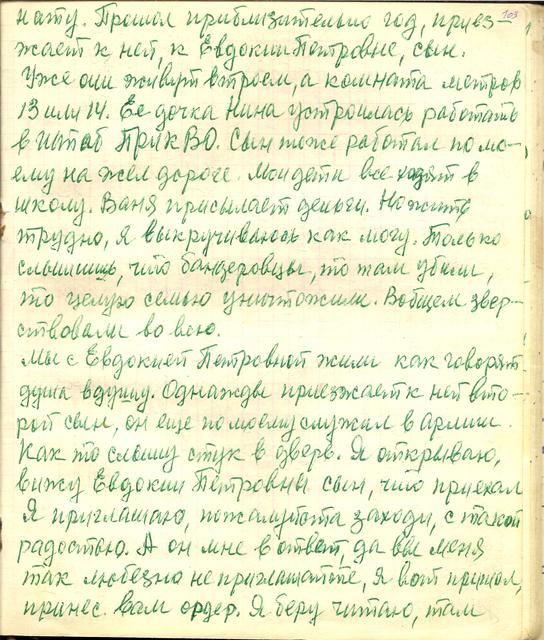 103
нату. Прошол приблизительно год, приез-
жает к ней, к Евдокии Петровне, сын.
Уже они живут втроем, а комната метров
13 или 14. Ее дочка Нина устроилась работать
в штаб ПрикВО. Сын тоже работал по мо-
ему на жел дороге. Мои дети все ходят в
школу. Ваня присылает деньги. Но жить
трудно, я выкручиваюсь как могу. Только
слышишь, что бандеровцы, то там убили,
то целую семью уничтожили. Вобщем звер-
ствовали во всю.
Мы с Евдокией Петровной жили как говорят
душа вдушу. Однажды приезжает к ней вто-
рой сын, он еще по моему служил в армии.
Как то слышу стук в дверь. Я открываю,
вижу Евдокии Петровны сын, что приехал
Я приглашаю, пожалуйста заходи, с такой
радостью. А он мне в ответ, да вы меня
так любезно не приглашайте, я вот пришол,
принес вам ордер. Я беру читаю, там